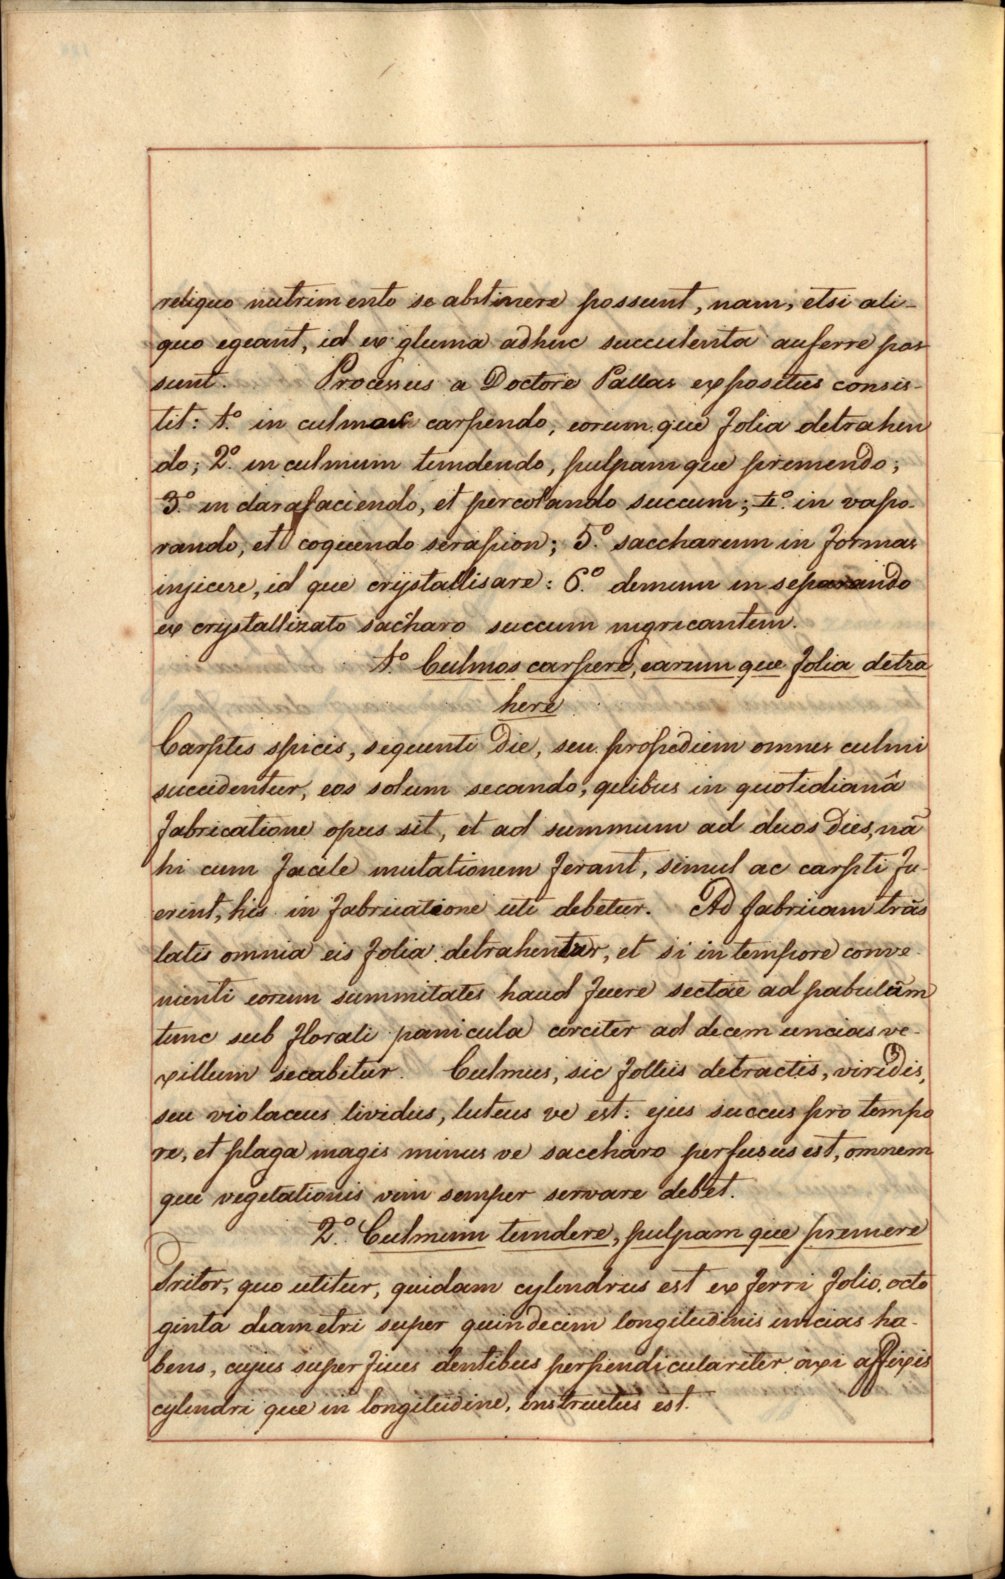 reliquo nutrimento se abstinere possunt, nam, etsi ali-
quo egeant, id ex gluma adhuc succulenta auferre pos
sunt. Processus a Doctore Pallas expositus consis-
tit: 1.º in culmos carpendo, eorum que folia detrahen
do; 2.º in culmum tundendo, pulpam que premendo;
3.º in clarafaciendo, et percolando succum; 4.º in vapo-
rando, et coquendo serapion; 5.º saccharum in formas
injicere, id que crystallisare: 6.º demum in separando
ex crystallizato saccharo succum nigricantem.
1.º Culmos carpere, earum que folia detra
here
Carptis spicis, sequenti die, seu propediem omnes culmi
succidentur, eos solum secando, quibus in quotidianâ
fabricatione opus sit, et ad summum ad duos dies, nā
hi cum facile mutationem ferant, simul ac carpti fu-
erint, his in fabricatione uti debetur. Ad fabricam trās
latis omnia eis folia detrahentur, et si in tempore conve-
nienti eorum summitates haud fuere sectae ad pabulūm
tunc sub florali panicula circiter ad decem uncias ve-
xillum secabitur. Culmus, sic foliis detractis, viridis,
seu violaceus lividus, luteus ve est: ejus succus pro tempo
re, et plaga magis minus ve saccharo perfusus est, omnem
que vegetationis vim semper servare debet.
2.º Culmum tundere, pulpam que premere
Tritor, quo utitur, quidam cylindrus est ex ferri folio, octo
ginta diametri super quindecim longitudinis uncias ha-
bens, cujus superficies dentibus perpendiculariter axi affixis
cylindri que in longitudine, instructus est.